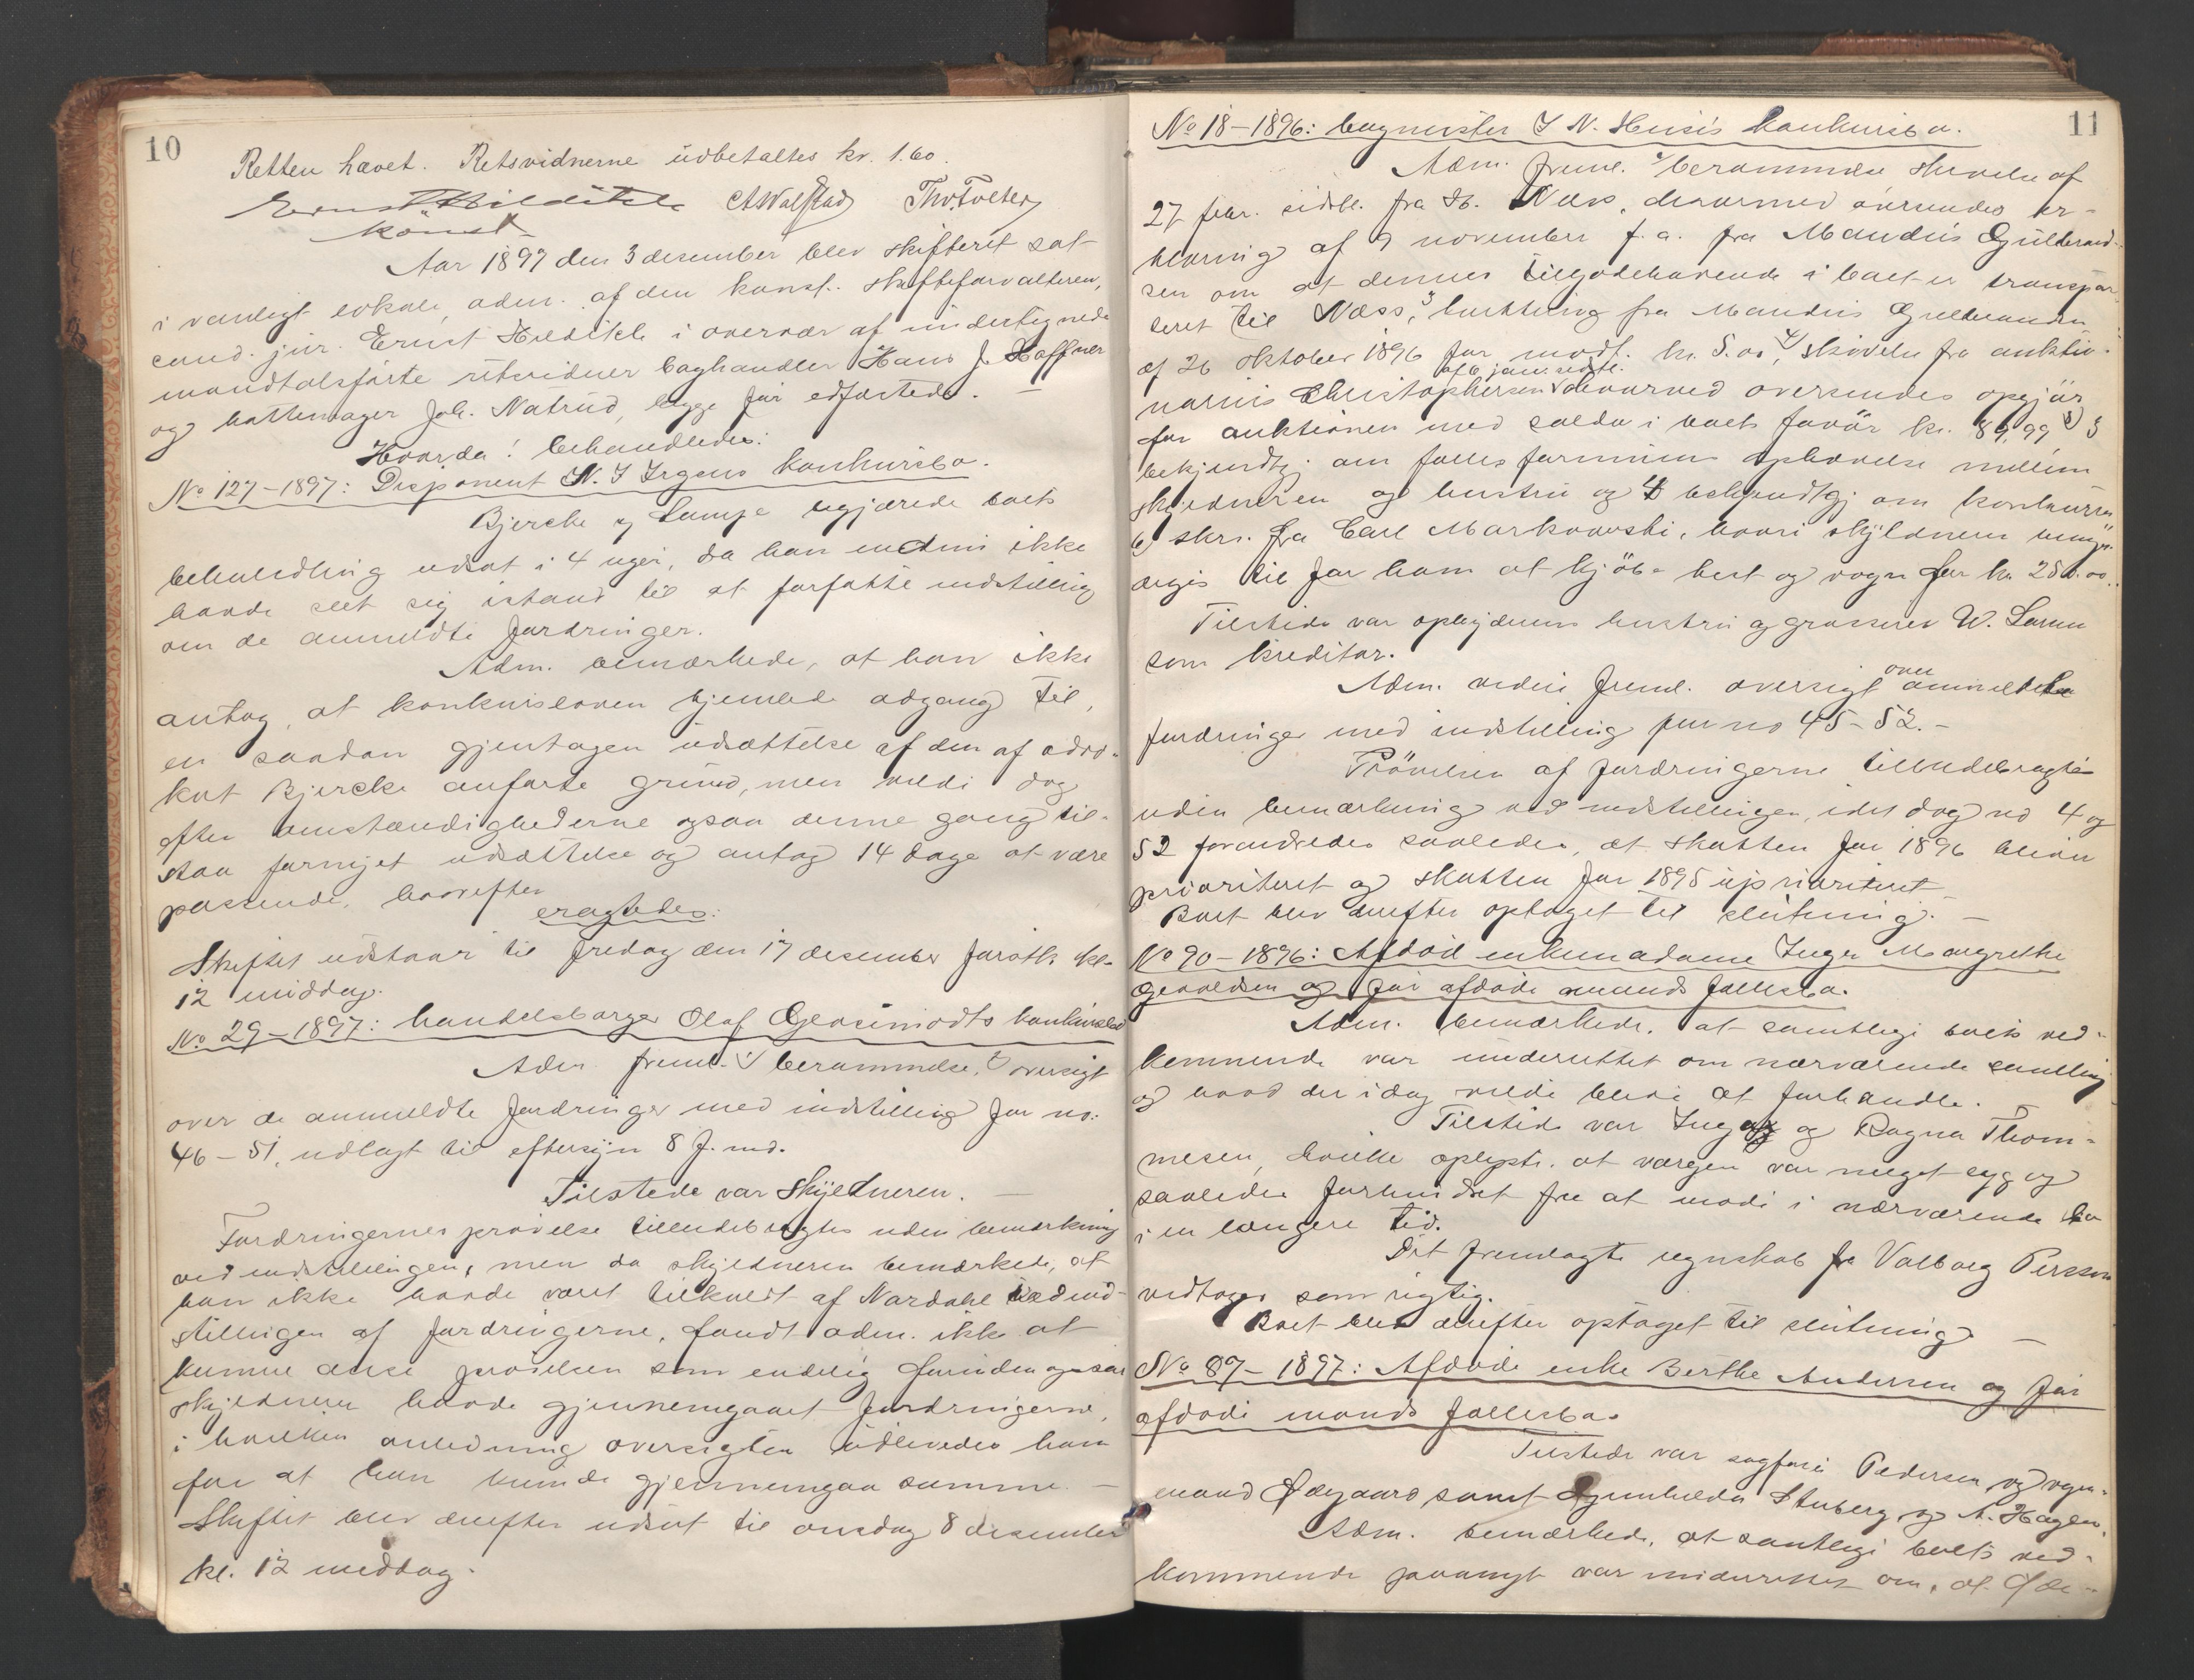 10
Retten hævet. Retsvidnerne udbetaltes kr. 1.60.
Ernst Hilditch A Walstad Thv. Tveter
konst.
Aar 1897 den 3 desember blev skifteret sat
i vanligt lokale, adm. af den konst. skifteforvalteren,
cand. jur. Ernst Hilditch i overvær af undertegnede
mandtalsførte retsvidner boghandler Hans J. Haffner
og hattemager Joh. Natrud, begge før edfæstede. —
Hvorda! behandledes:
No 127 – 1897: Disponent N. J Irgens konkursbo.
Bjercke og Lampe begjærede boets
behandling udsat i 4 uger, da han endnu ikke
havde seet sig istand til at forfatte indstilling
om de anmeldte fordringer.
Adm. bemærkede, at han ikke
antog, at konkursloven hjemlede adgang til,
en saadan gjentagen udsættelse af den af advo-
kat Bjercke anførte grund, men vilde dog
efter omstændighederne ogsaa denne gang til-
staa fornyet udsættelse og antog 14 dage at være
passende, hvorefter
eragtedes:
Skiftet udstaar til fredag den 17 desember førstk. kl.
12 middag.
No 29 – 1897: handelsborger Olaf Gjersmodts konkursbo
Adm. freml. 1) berammelse, 2) oversigt
over de anmeldte fordringer med indstilling for no:
46 – 51, udlagt til eftersyn 8 f. md.
Tilstede var Skyldneren. —
Fordringernes prøvelse tilendebragtes uden bemærkning
ved indstillingen, men da skyldneren bemærkede, at
han ikke havde været tilkaldt af Nordahl ved ind-
stillingen af fordringerne, fandt adm. ikke at
kunne anse prøvelsen som endelig forinden ogsaa
skyldneren havde gjennemgaaet fordringerne,
i hvilken anledning oversigten udleveredes ham
for at han kunde gjennemgaa samme. —
Skiftet blev derefter udsat til onsdag 8 desember
kl. 12 middag.
11
No 18 – 1896: bagmester J N. Husis konkursbo.
Adm. freml. 1) berammelse skrivelse af
27 febr. sidstl. fra Næss, hvormed oversendes er-
klæring af 9 november f. a. fra Maudius Gulbrand-
sen om at dennes tilgodehavende i boet er transpor-
teret til Næss, 3) kvittering fra Maudius Gulbrandsen
af 26 oktober 1896 for modt. kr. 5.00, 4) skrivelse fra auktio-
af 6 jan. sidstl.
narius Christophersen hvorved oversendes opgjør
for auktionen med saldo i boets favør kr. 89,99 5) 3
bekjendtgj om fællesformuens ophævelse mellem
skyldneren og hustru og 4 bekjendtgj om konkursen
6) skr. fra Carl Markowski, hvori skyldneren
til for ham at kjøbe hest og vogn for kr. 250.00.
Tilstede var opbyderens hustru og grosserer W.
som kreditor.
over
Adm. videre freml. oversigt anmeldte
fordringer med indstilling for no 45 – 52. –
Prøvelsen af fordringerne tilendebragtes
uden bemærkning ved indstillingen, idet dog no 4 og
52 forandredes saaledes, at skatten for 1896 bliver
prioriteret og skatten for 1895 uprioriteret
Boet blev derefter optaget til slutning. —
No 90 – 1896: Afdød enkemadame Inger Margrethe
og før afdøde mands fællesbo.
Adm. bemærkede, at samtlige boets ved-
kommende var underrettet om nærværende samling
og hvad der idag vilde blive at forhandle. —
Tilstede var Inga og Ragna Thom-
mesen, hvilke oplyste, at værgen var meget syg og
saaledes forhindret fra at møde i nærværende bo
i en længere tid.
Det fremlagte regnskab fra Valborg Persson
vedtoges som rigtig.
Boet blev derefter optaget til slutning —
No 87 – 1897: Afdøde enke Berthe Andersen og før
afdøde mands fællesbo.
Tilstede var sagfører Pedersen og vogn-
mand Ødegaard samt Gunhilda Stuberg og A. Hagen.
Adm. bemærkede, at samtlige boets ved-
kommende paanyt var underrettet om, at